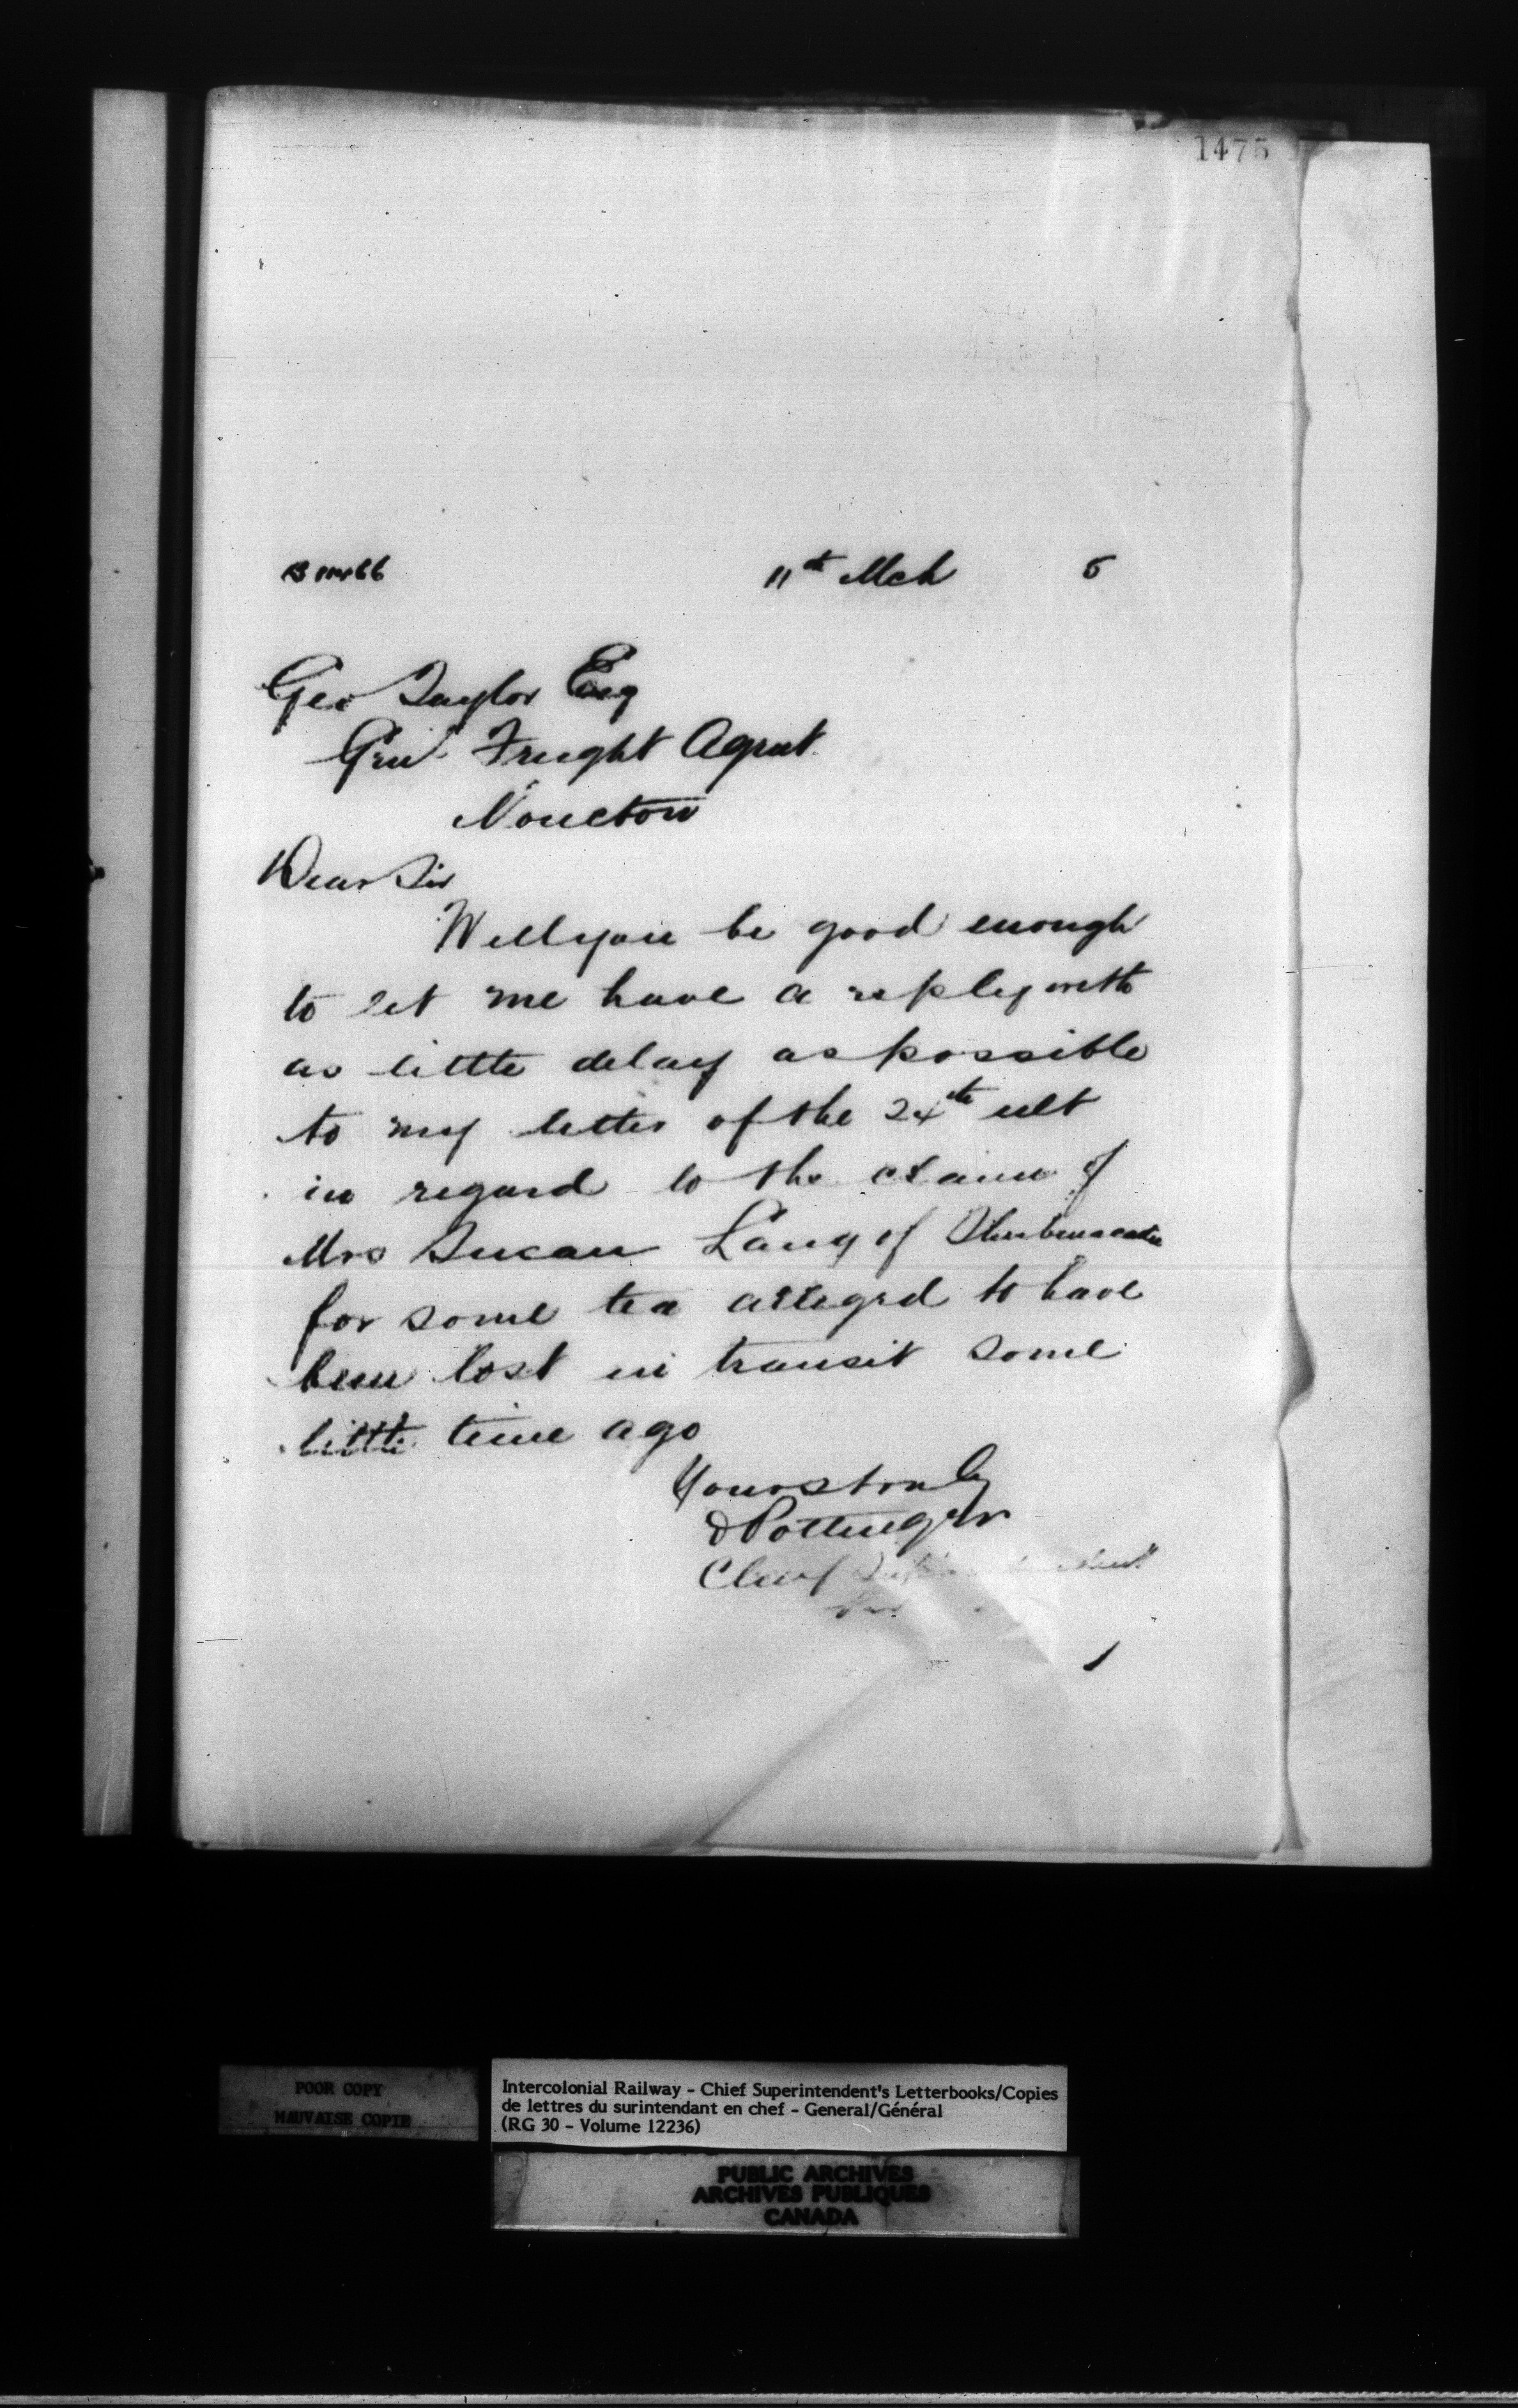 1475
11th Mch 5
Geo Taylor Esq
Genl Freight Agent
Moncton
Dear Sir
Will you be good enough
to let me have a reply with
as little delay as possible
to my letter of the 24th ult
in regard to the claim of
Mrs Susan Lang of
for some tea alleged to have
been lost in transit some
little time ago
Yours truly
D Pottinger
Chief Superintendent
POOR COPY
MAUVAISE COPIE
Intercolonial Railway - Chief Superintendent's Letterbooks/Copies
de lettres du surintendant en chef - General/Général
(RG 30 - Volume 12236)
PUBLIC ARCHIVES
ARCHIVES PUBLIQUES
CANADA